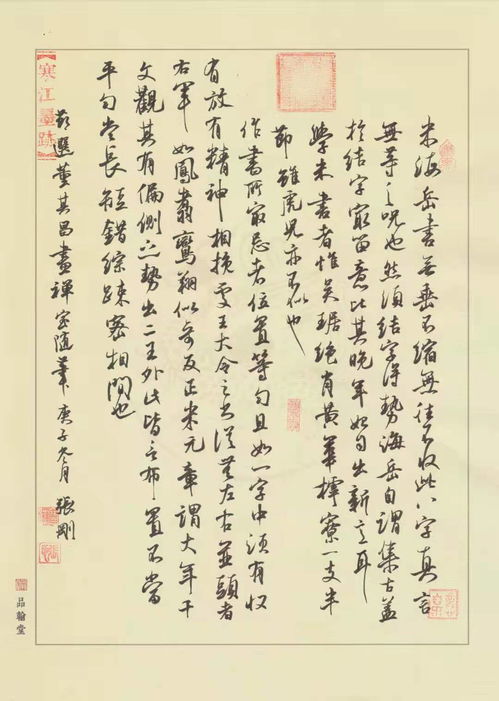 米海岳書無垂不縮無往不收此八字真言
無等之呪也然須結字得勢海岳自謂集古蓋
於結字最留意比其晚年始自出新意耳
學米書者惟吳琚絕肖黃華樗寮一支半
節雖虎兒亦不似也
作書所最忌者位置等勻且如一字中須有收
有放有精神相挽處王大令之書從無左右並頭者
右軍如鳳翥鸞翔似奇反正米元章謂大年千
文觀其有偏側之勢出二王外此皆言布置不當
平勻當長短錯綜疎密相間也
節選董其昌畫禪室隨筆 庚子冬月 張剛
寒江墨跡
品翰堂